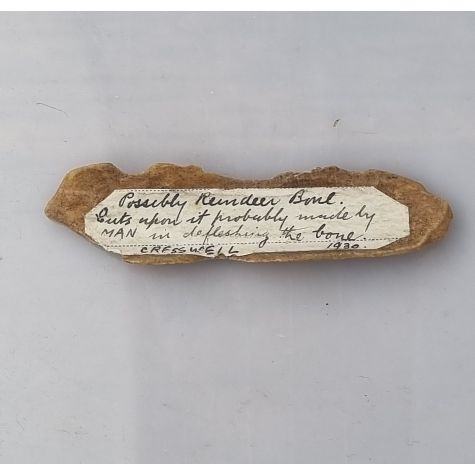 Possibly Reindeer Bone.
Cuts upon it probably made by
MAN in defleshing the bone.
CRESSWELL 1930.